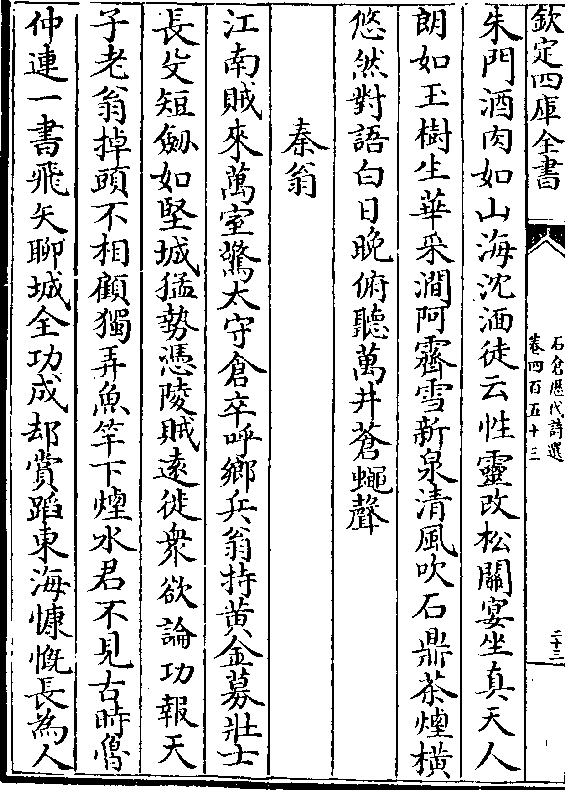 欽定四庫全書
石倉歷代詩選
卷四百五十三
二十三
朱門酒肉如山海沈湎徒云性靈改松關宴坐真天人
朗如玉樹生華采澗阿霽雪新泉清風吹石鼎茶煙橫
悠然對語白日晚俯聽萬井蒼蠅聲
秦翁
江南賊來萬室驚太守倉卒呼鄉兵翁持黄金募壯士
長殳短劔如堅城猛勢憑陵賊遠徙衆欲論功報天
子老翁掉頭不相顧獨弄魚竿下煙水君不見古時魯
仲連一書飛矢聊城全功成却賞蹈東海慷慨長為人